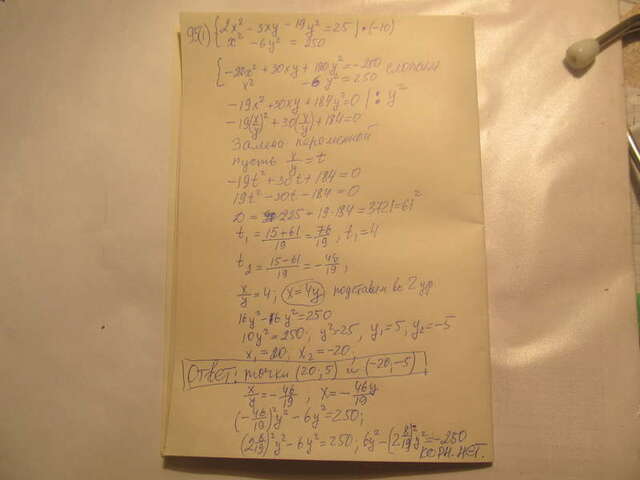 95(1) { 2x² - 3xy - 19y² = 25 | ·(-10)
x² - 6y² = 250
{ -20x² + 30xy + 190y² = -250 сложим
x² - 6y² = 250
-19x² + 30xy + 184y² = 0 | : y²
-19(x/y)² + 30(x/y) + 184 = 0
Замена переменной
Пусть x/y = t
-19t² + 30t + 184 = 0
19t² - 30t - 184 = 0
D = 225 + 19·184 = 3721 = 61²
t₁ = (15+61)/19 = 76/19, t₁ = 4
t₂ = (15-61)/19 = -46/19;
x/y = 4; x = 4y подставим во 2 ур.
16y² - 6y² = 250
10y² = 250; y² = 25, y₁ = 5, y₂ = -5
x₁ = 20; x₂ = -20;
Ответ: точки (20; 5) и (-20, -5)
x/y = -46/19, x = -46y/19
(-46/19)²y² - 6y² = 250;
(2 8/19)²y² - 6y² = 250; 6y² - (2 8/19)²y² = -250
КОРН. НЕТ.